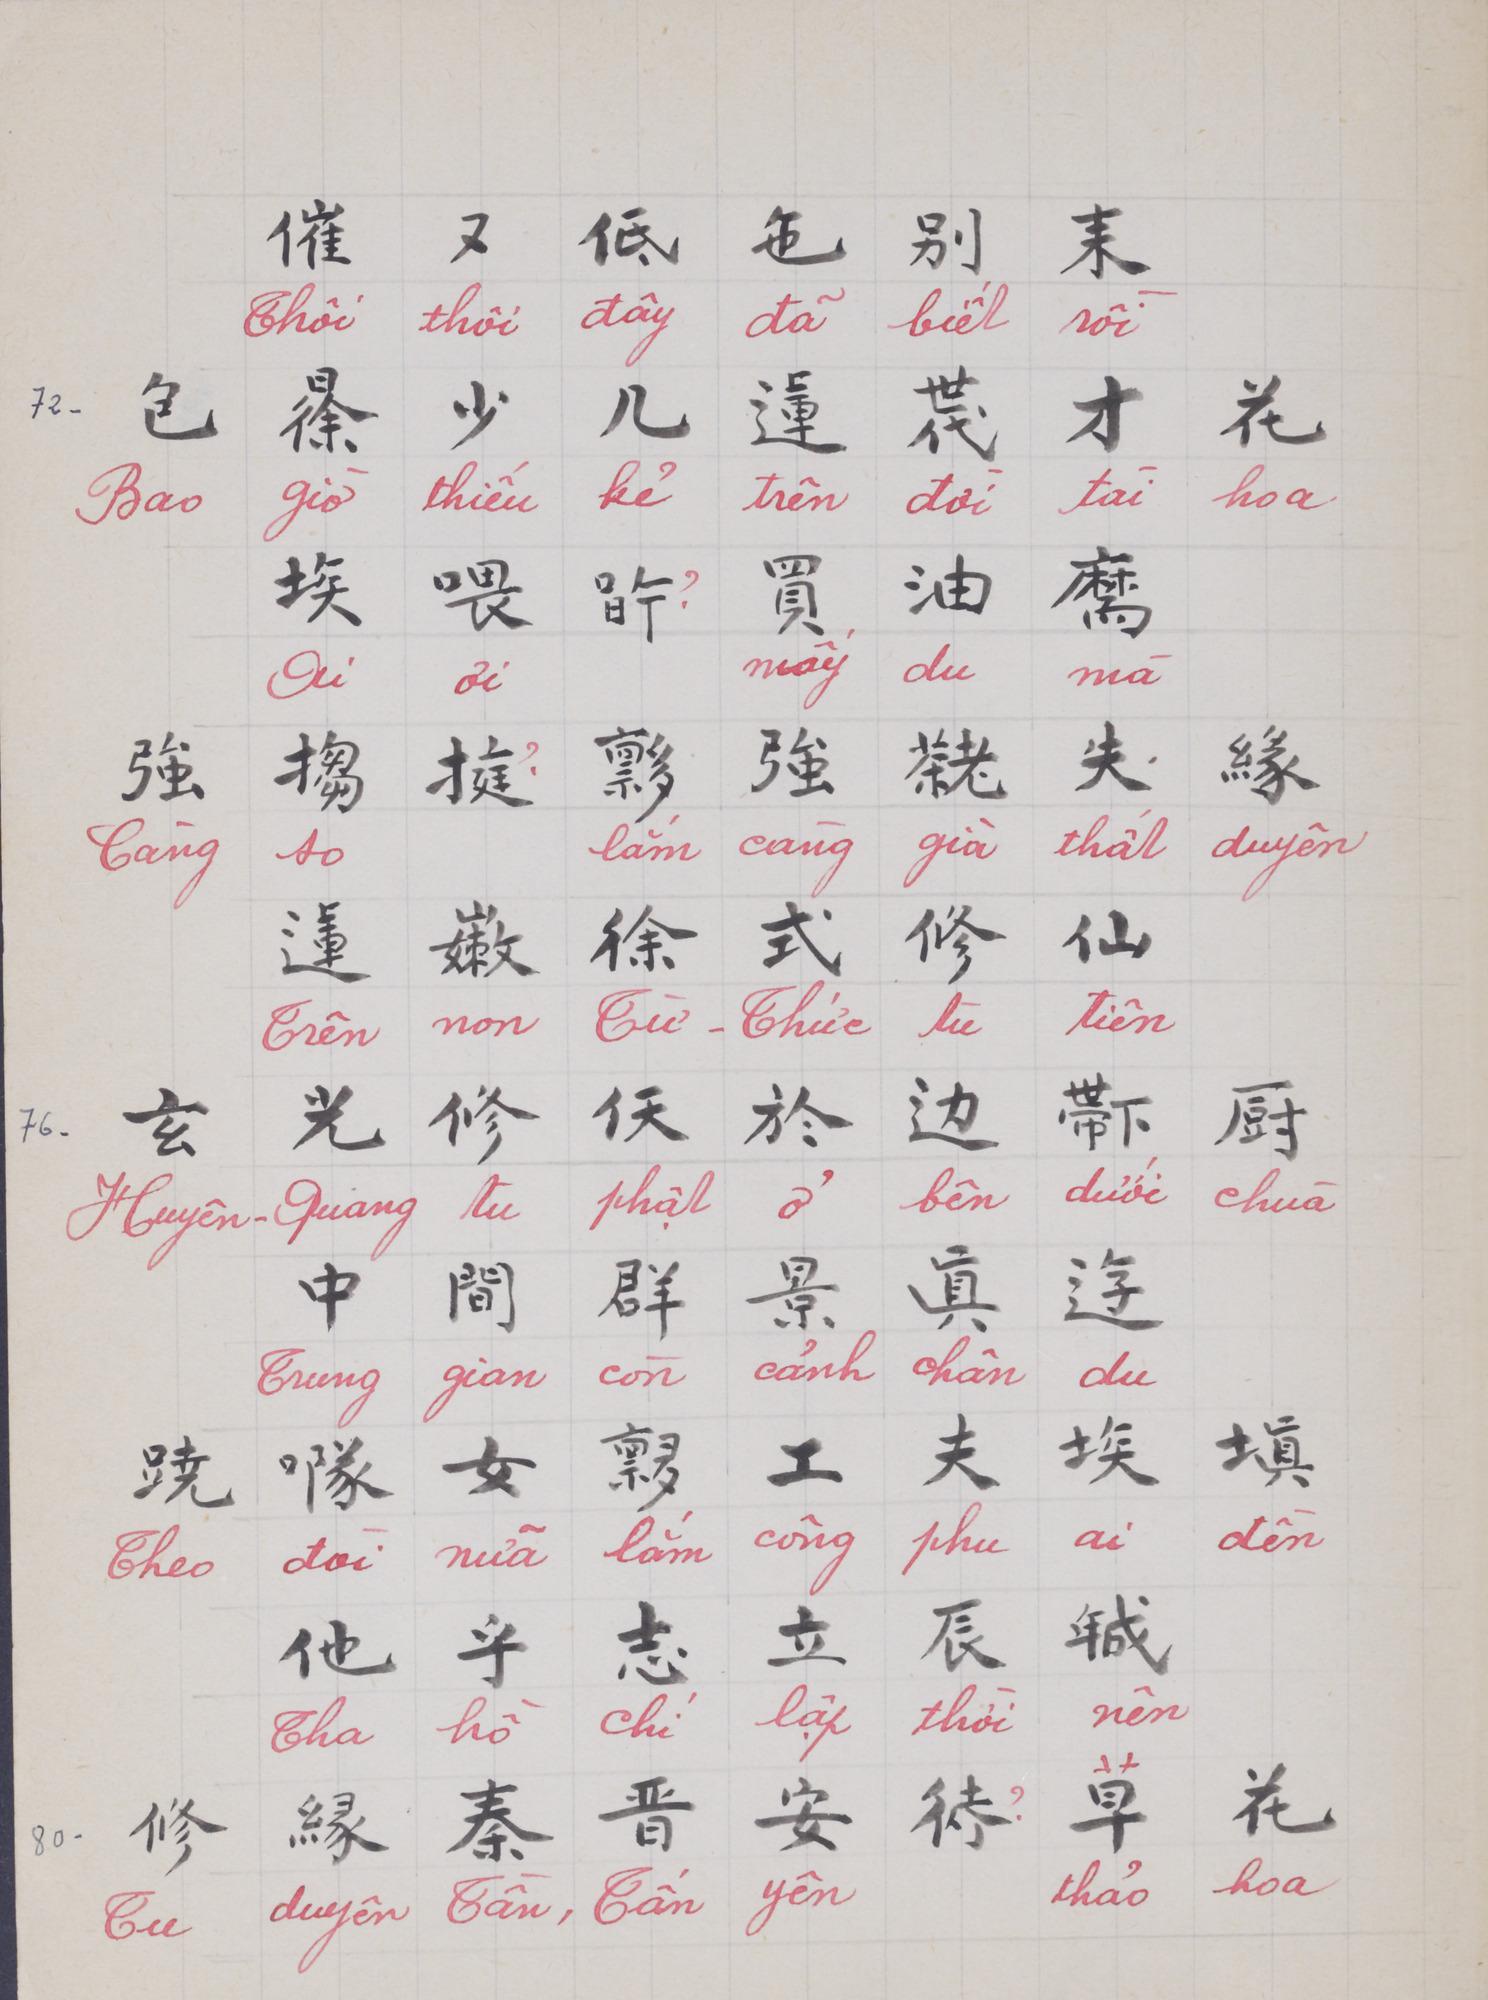 催 又 低 㐌 别 耒
Thôi thôi đây đã biết rồi
72- 包 𣇞 少 几 蓮 𠁀 才 花
Bao giờ thiếu kẻ trên đời tài hoa
埃 喂 ? 買 油 𦓡
Ai ơi mấy du mà
強 搊 挺? 夥 強 𦓅 失 緣
Càng so lắm càng già thất duyên
蓮 嫩 徐 式 修 仙
Trên non Từ - Thức tu tiên
76- 玄 光 修 仸 於 边 𠁑 厨
Huyền - Quang tu phật ở bên dưới chùa
中 間 群 景 眞 遊
Trung gian còn cảnh chân du
蹺 隊 女 夥 工 夫 埃 塡
Theo đòi nữa lắm công phu ai đền
他 乎 志 立 辰 𢧚
Tha hồ chí lập thời nên
80- 修 緣 秦 晋 安 待? 草 花
Tu duyên Tần, Tấn yên thảo hoa